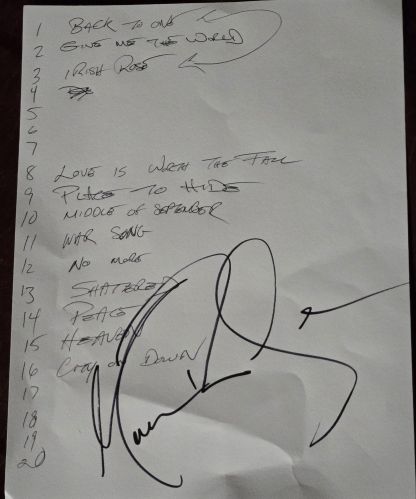 1 BACK TO ONE
2 GIVE ME THE WORLD
3 IRISH ROSE
4
5
6
7
8 LOVE IS WORTH THE FALL
9 PLACE TO HIDE
10 MIDDLE OF SEPEMBER
11 WAR SONG
12 NO MORE
13 SHATTERED
14 PEACE
15 HEAVEN
16 CITY ON DOWN
17
18
19
20